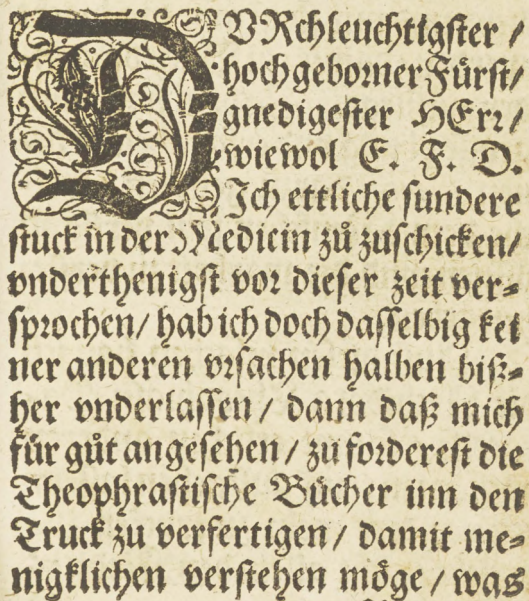 DVRchleuchtigster /
hochgeborner Fürst/
gnedigester HErr/
wiewol E. F. D.
Ich ettliche sundere
stuck in der Medicin zů zuschicken/
vnderthenigst vor dieser zeit ver=
sprochen/ hab ich doch dasselbig kei
ner anderen vrsachen halben biß=
her vnderlassen / dann daß mich
für gůt angesehen / zu forderest die
Theophrastische Bücher inn den
Truck zu verfertigen / damit me=
nigklichen verstehen möge / was